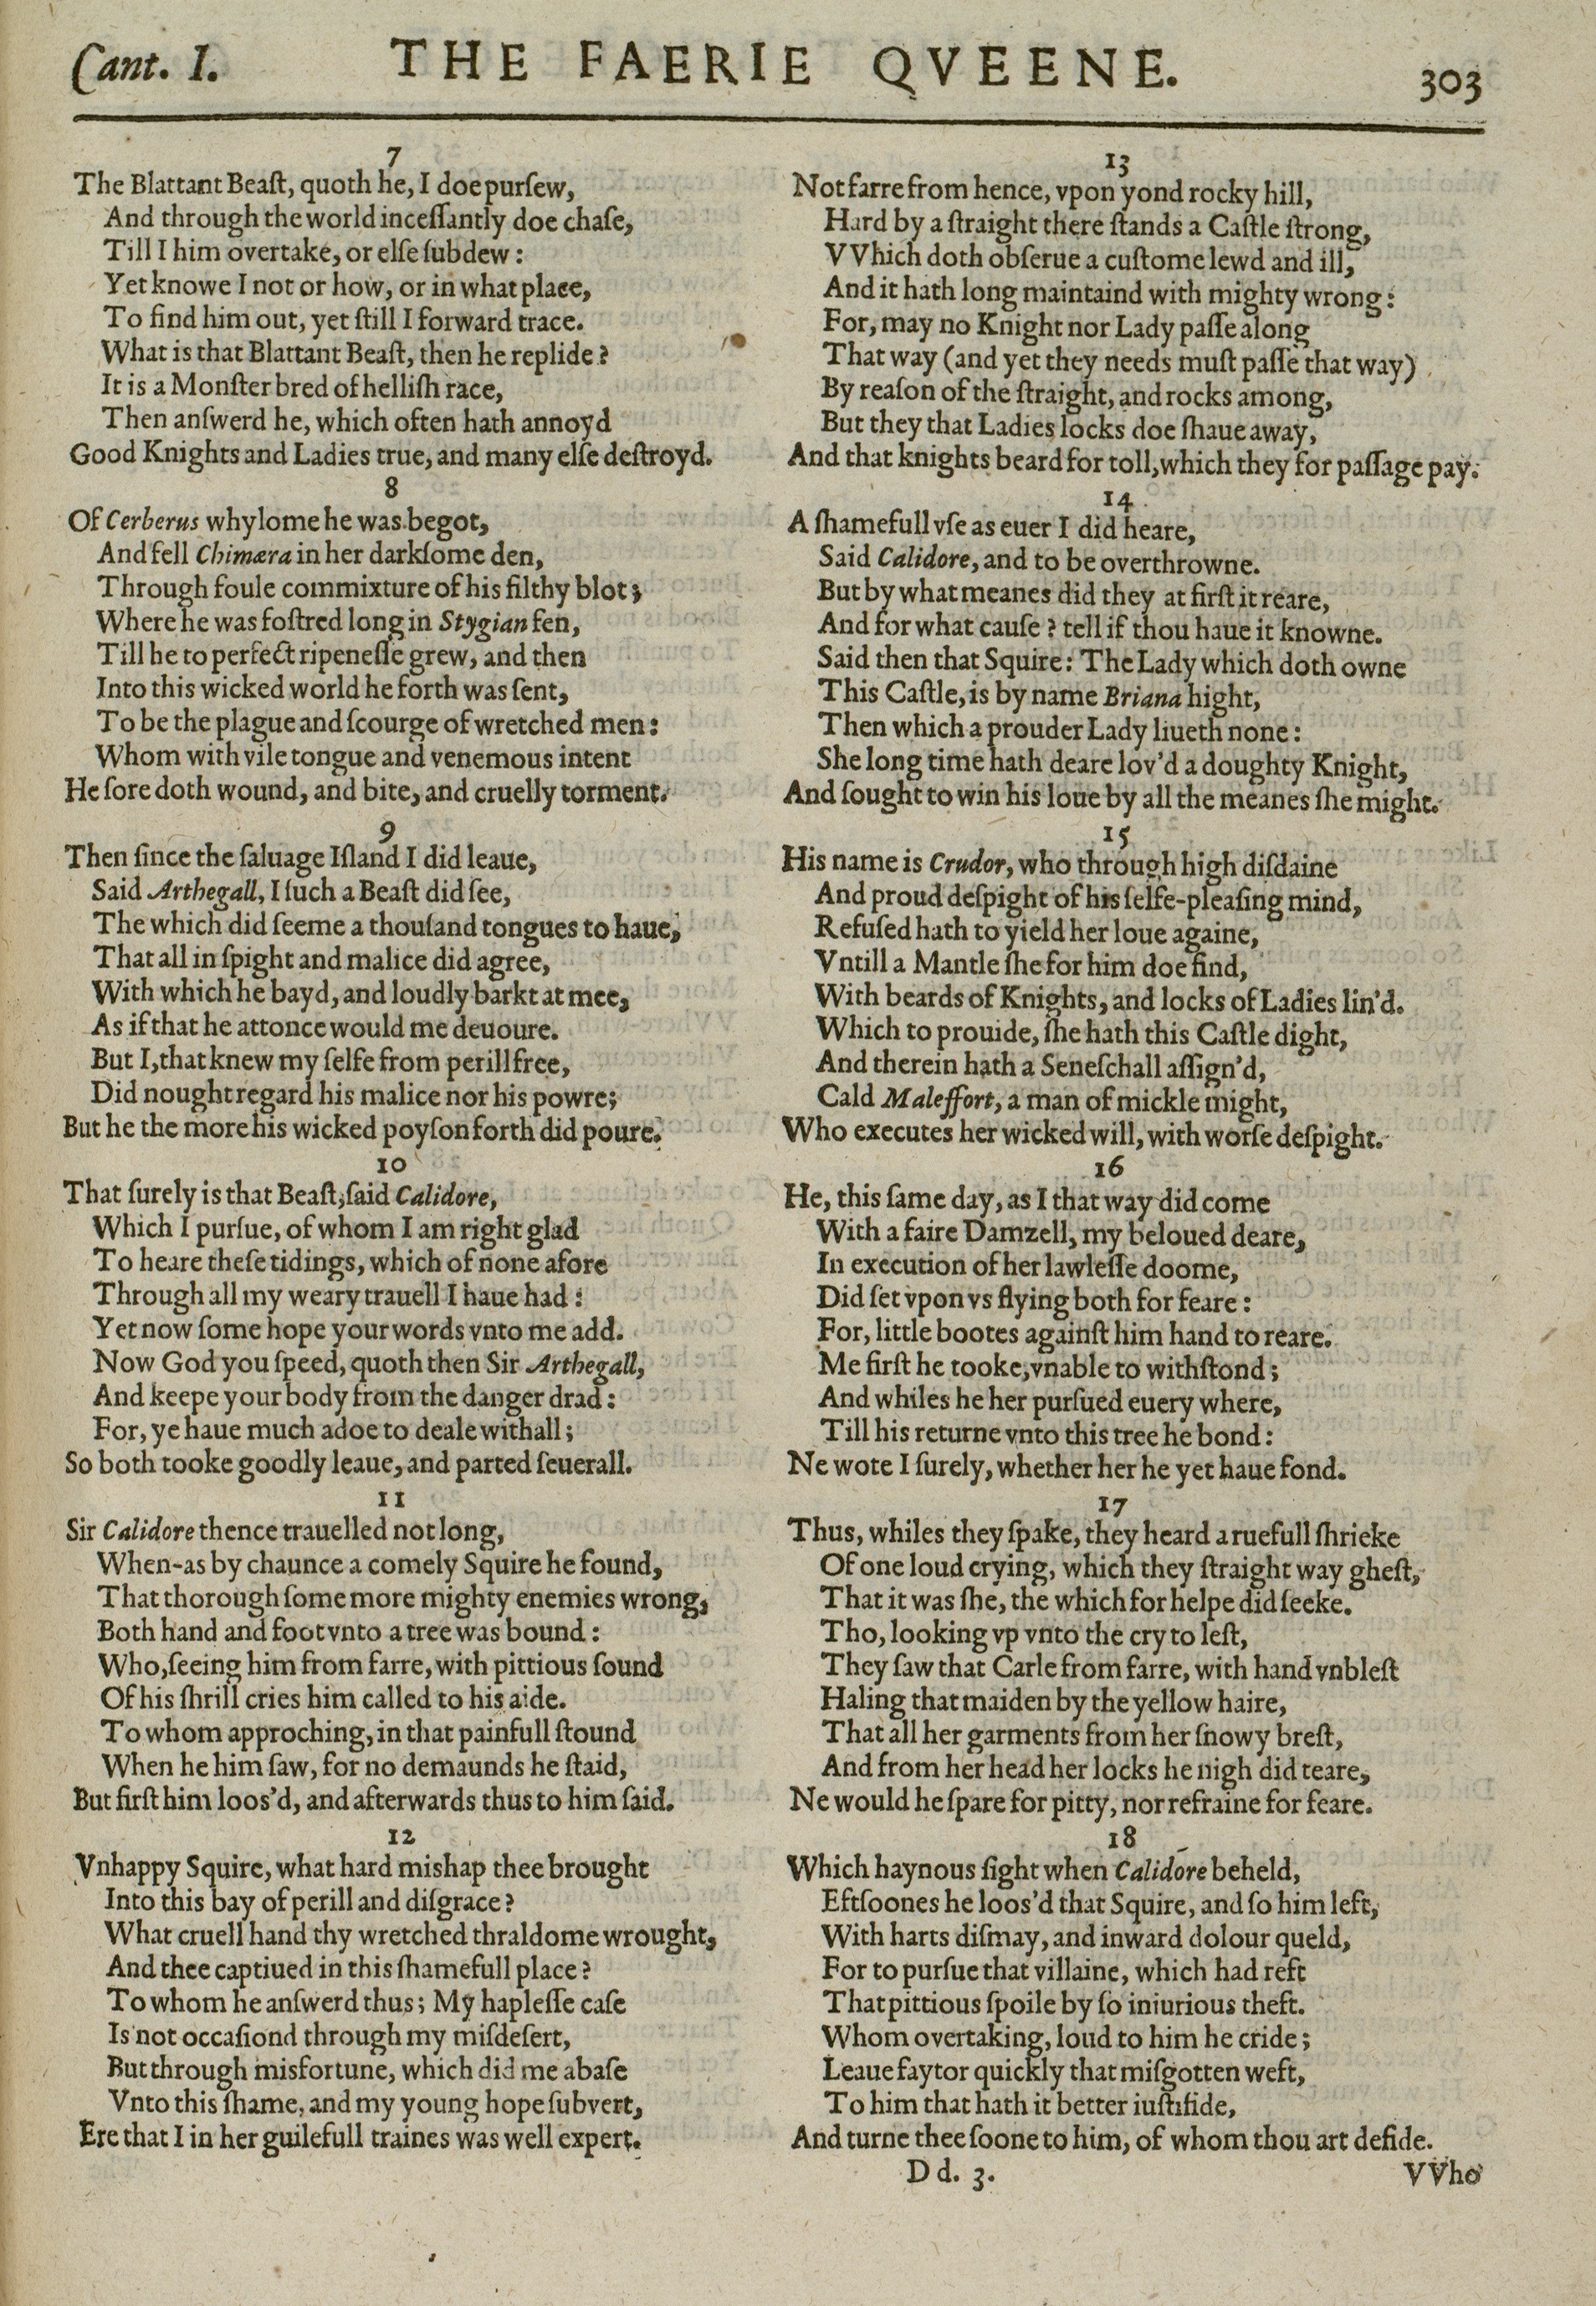 Cant. I.
THE FAERIE QVEENE.
303
7
The Blattant Beaſt, quoth he, I doe purſew,
And through the world inceſſantly doe chaſe,
Till I him overtake, or elſe ſubdew:
Yet knowe I not or how, or in what place,
To find him out, yet ſtill I forward trace.
What is that Blattant Beaſt, then he replide?
It is a Monſter bred of helliſh race,
Then anſwerd he, which often hath annoyd
Good Knights and Ladies true, and many elſe deſtroyd.
8
Of Cerberus whylome he was begot,
And fell Chimæra in her darkſome den,
Through foule commixture of his filthy blot;
Where he was foſtred long in Stygian fen,
Till he to perfect ripeneſſe grew, and then
Into this wicked world he forth was ſent,
To be the plague and ſcourge of wretched men:
Whom with vile tongue and venemous intent
He ſore doth wound, and bite, and cruelly torment.
9
Then ſince the ſaluage Iſland I did leaue,
Said Arthegall, I ſuch a Beaſt did ſee,
The which did ſeeme a thouſand tongues to haue,
That all in ſpight and malice did agree,
With which he bayd, and loudly barkt at mee,
As if that he attonce would me deuoure.
But I, that knew my ſelfe from perill free,
Did nought regard his malice nor his powre;
But he the more his wicked poyſon forth did poure.
10
That ſurely is that Beaſt, ſaid Calidore,
Which I purſue, of whom I am right glad
To heare theſe tidings, which of none afore
Through all my weary trauell I haue had:
Yet now ſome hope your words vnto me add.
Now God you ſpeed, quoth then Sir Arthegall,
And keepe your body from the danger drad:
For, ye haue much adoe to deale withall;
So both tooke goodly leaue, and parted ſeuerall.
11
Sir Calidore thence trauelled not long,
When-as by chaunce a comely Squire he found,
That thorough ſome more mighty enemies wrong,
Both hand and foot vnto a tree was bound:
Who, ſeeing him from farre, with pittious ſound
Of his ſhrill cries him called to his aide.
To whom approching, in that painfull ſtound
When he him ſaw, for no demaunds he ſtaid,
But firſt him loos'd, and afterwards thus to him ſaid.
12
Vnhappy Squire, what hard mishap thee brought
Into this bay of perill and diſgrace?
What cruell hand thy wretched thraldome wrought,
And thee captiued in this ſhamefull place?
To whom he anſwerd thus; My hapleſſe caſe
Is not occaſiond through my miſdeſert,
But through misfortune, which did me abaſe
Vnto this ſhame, and my young hope ſubvert,
Ere that I in her guilefull traines was well expert.
13
Not farre from hence, vpon yond rocky hill,
Hard by a ſtraight there ſtands a Caſtle ſtrong,
VVhich doth obſerue a cuſtome lewd and ill,
And it hath long maintaind with mighty wrong:
For, may no Knight nor Lady paſſe along
That way (and yet they needs muſt paſſe that way)
By reaſon of the ſtraight, and rocks among,
But they that Ladies locks doe ſhaue away,
And that knights beard for toll, which they for paſſage pay.
14
A ſhamefull vſe as euer I did heare,
Said Calidore, and to be overthrowne.
But by what meanes did they at firſt it reare,
And for what cauſe? tell if thou haue it knowne.
Said then that Squire: The Lady which doth owne
This Caſtle, is by name Briana hight,
Then which a prouder Lady liueth none:
She long time hath deare lov'd a doughty Knight,
And ſought to win his loue by all the meanes ſhe might.
15
His name is Crudor, who through high diſdaine
And proud deſpight of his ſelfe-pleaſing mind,
Refuſed hath to yield her loue againe,
Vntill a Mantle ſhe for him doe find,
With beards of Knights, and locks of Ladies lin'd.
Which to prouide, ſhe hath this Caſtle dight,
And therein hath a Seneſchall aſſign'd,
Cald Maleffort, a man of mickle might,
Who executes her wicked will, with worſe deſpight.
16
He, this ſame day, as I that way did come
With a faire Damzell, my beloued deare,
In execution of her lawleſſe doome,
Did ſet vpon vs flying both for feare:
For, little bootes againſt him hand to reare.
Me firſt he tooke, vnable to withſtond;
And whiles he her purſued euery where,
Till his returne vnto this tree he bond:
Ne wote I ſurely, whether her he yet haue fond.
17
Thus, whiles they ſpake, they heard a ruefull ſhrieke
Of one loud crying, which they ſtraight way gheſt,
That it was ſhe, the which for helpe did ſeeke.
Tho, looking vp vnto the cry to leſt,
They ſaw that Carle from farre, with hand vnbleſt
Haling that maiden by the yellow haire,
That all her garments from her ſnowy breſt,
And from her head her locks he nigh did teare,
Ne would he ſpare for pitty, nor refraine for feare.
18
Which haynous ſight when Calidore beheld,
Eftſoones he loos'd that Squire, and ſo him left,
With harts diſmay, and inward dolour queld,
For to purſue that villaine, which had reft
That pittious ſpoile by ſo iniurious theft.
Whom overtaking, loud to him he cride;
Leaue faytor quickly that miſgotten weft,
To him that hath it better iuſtifide,
And turne thee ſoone to him, of whom thou art defide.
D d. 3.
VVho